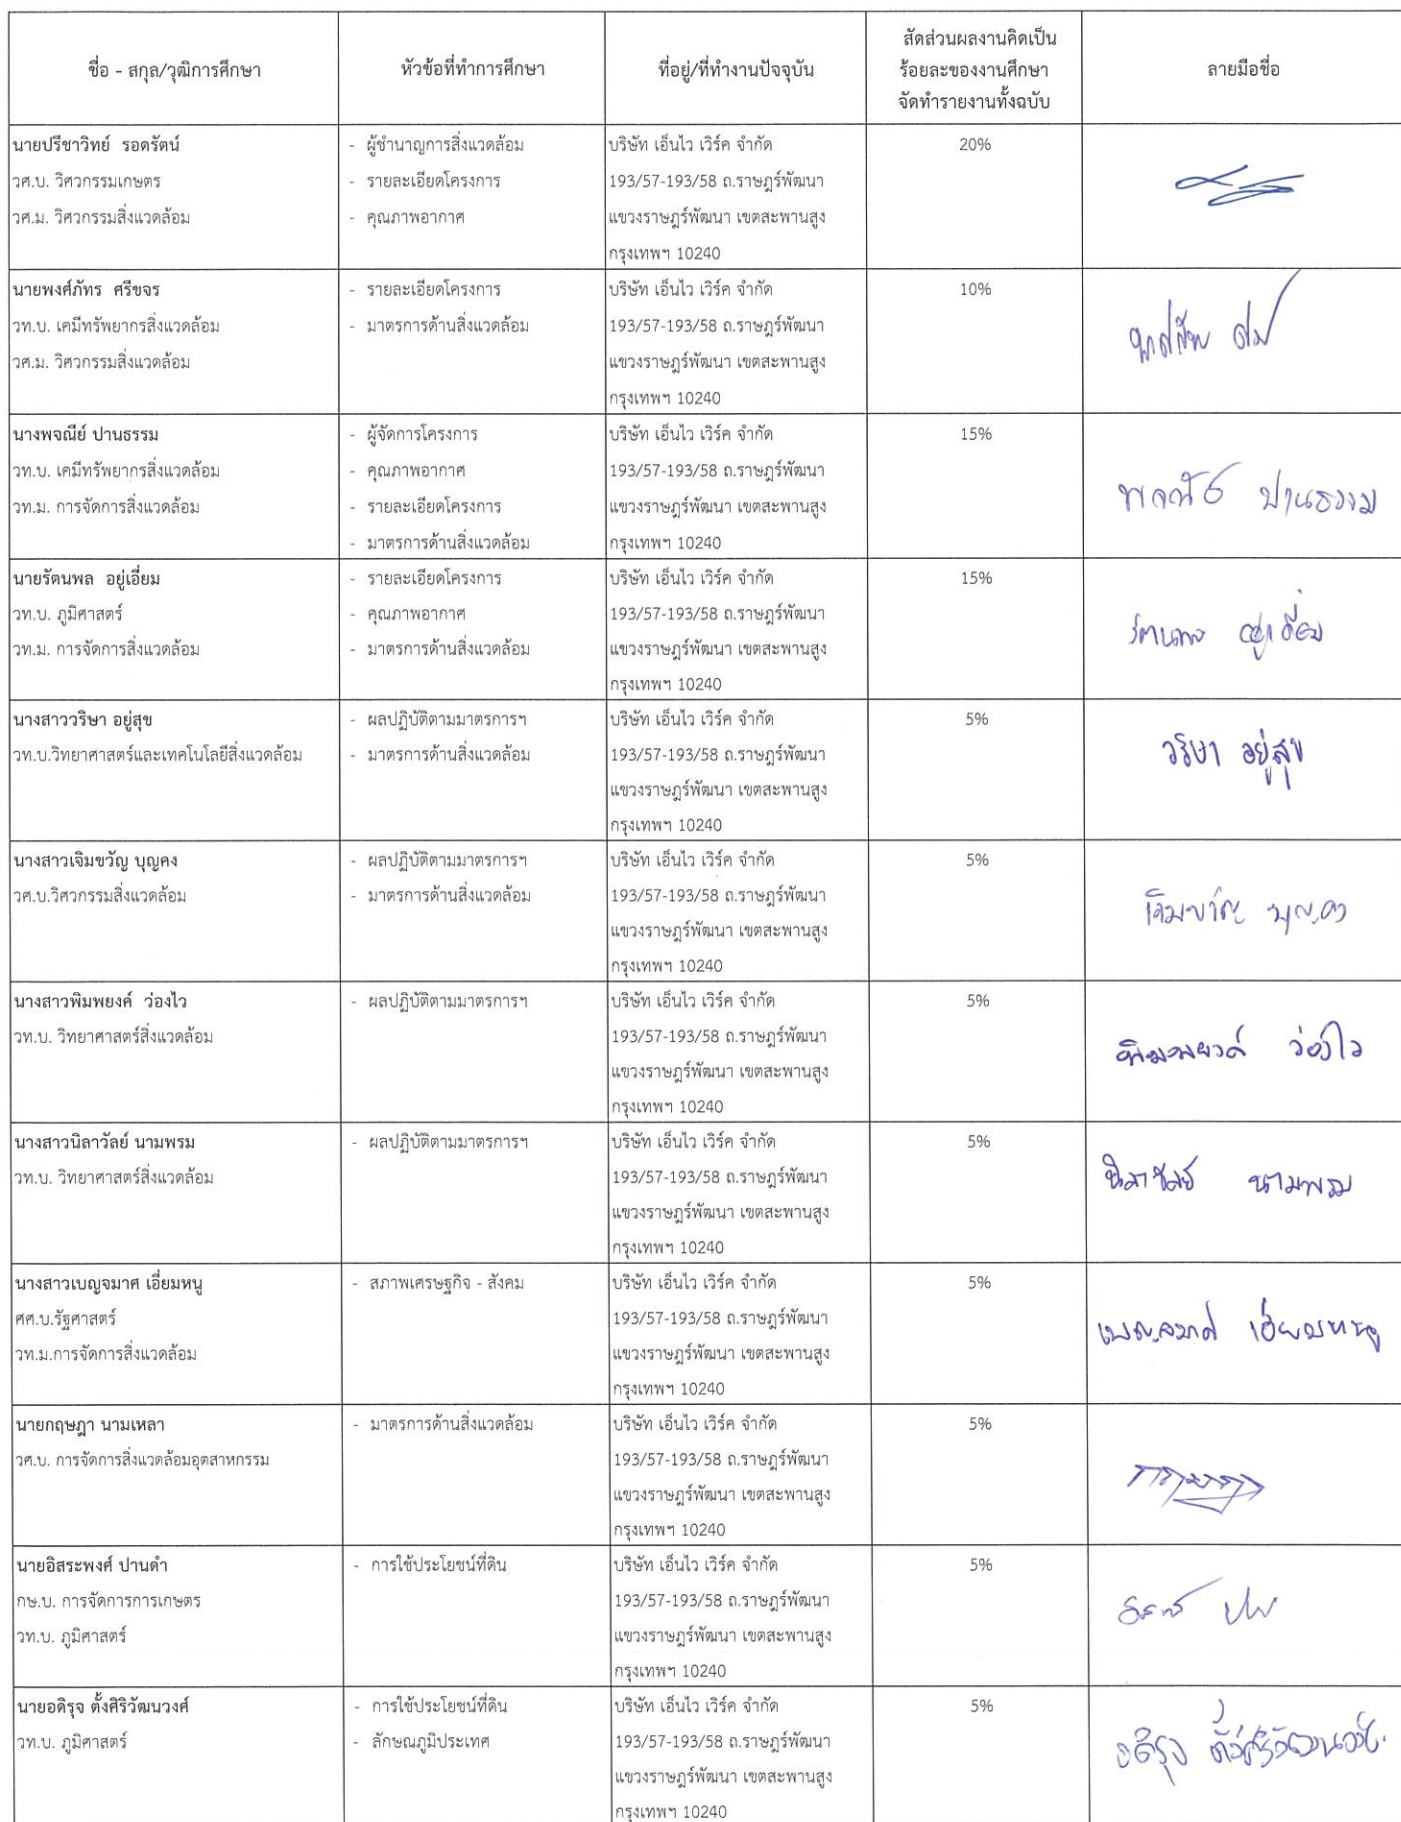 ชื่อ - สกุล/วุฒิการศึกษา
หัวข้อที่ทำการศึกษา
ที่อยู่/ที่ทำงานปัจจุบัน
สัดส่วนผลงานคิดเป็น
ร้อยละของงานศึกษา
จัดทำรายงานทั้งฉบับ
ลายมือชื่อ
นายปรีชาวิทย์ รอดรัตน์
วศ.บ. วิศวกรรมเกษตร
วศ.ม. วิศวกรรมสิ่งแวดล้อม
- ผู้ชำนาญการสิ่งแวดล้อม
- รายละเอียดโครงการ
- คุณภาพอากาศ
บริษัท เอ็นไว เวิร์ค จำกัด
193/57-193/58 ถ.ราษฎร์พัฒนา
แขวงราษฎร์พัฒนา เขตสะพานสูง
กรุงเทพฯ 10240
20%
นายพงศ์ภัทร ศรีขจร
วท.บ. เคมีทรัพยากรสิ่งแวดล้อม
วศ.ม. วิศวกรรมสิ่งแวดล้อม
- รายละเอียดโครงการ
- มาตรการด้านสิ่งแวดล้อม
บริษัท เอ็นไว เวิร์ค จำกัด
193/57-193/58 ถ.ราษฎร์พัฒนา
แขวงราษฎร์พัฒนา เขตสะพานสูง
กรุงเทพฯ 10240
10%
นางพจณีย์ ปานธรรม
วท.บ. เคมีทรัพยากรสิ่งแวดล้อม
วท.ม. การจัดการสิ่งแวดล้อม
- ผู้จัดการโครงการ
- คุณภาพอากาศ
- รายละเอียดโครงการ
- มาตรการด้านสิ่งแวดล้อม
บริษัท เอ็นไว เวิร์ค จำกัด
193/57-193/58 ถ.ราษฎร์พัฒนา
แขวงราษฎร์พัฒนา เขตสะพานสูง
กรุงเทพฯ 10240
15%
พจณีย์ ปานธรรม
นายรัตนพล อยู่เอี่ยม
วท.บ. ภูมิศาสตร์
วท.ม. การจัดการสิ่งแวดล้อม
- รายละเอียดโครงการ
- คุณภาพอากาศ
- มาตรการด้านสิ่งแวดล้อม
บริษัท เอ็นไว เวิร์ค จำกัด
193/57-193/58 ถ.ราษฎร์พัฒนา
แขวงราษฎร์พัฒนา เขตสะพานสูง
กรุงเทพฯ 10240
15%
รัตนพล อยู่เอี่ยม
นางสาววริษา อยู่สุข
วท.บ.วิทยาศาสตร์และเทคโนโลยีสิ่งแวดล้อม
- ผลปฏิบัติตามมาตรการฯ
- มาตรการด้านสิ่งแวดล้อม
บริษัท เอ็นไว เวิร์ค จำกัด
193/57-193/58 ถ.ราษฎร์พัฒนา
แขวงราษฎร์พัฒนา เขตสะพานสูง
กรุงเทพฯ 10240
5%
วริษา อยู่สุข
นางสาวเจิมขวัญ บุญคง
วศ.บ.วิศวกรรมสิ่งแวดล้อม
- ผลปฏิบัติตามมาตรการฯ
- มาตรการด้านสิ่งแวดล้อม
บริษัท เอ็นไว เวิร์ค จำกัด
193/57-193/58 ถ.ราษฎร์พัฒนา
แขวงราษฎร์พัฒนา เขตสะพานสูง
กรุงเทพฯ 10240
5%
เจิมขวัญ บุญคง
นางสาวพิมพยงค์ ว่องไว
วท.บ. วิทยาศาสตร์สิ่งแวดล้อม
- ผลปฏิบัติตามมาตรการฯ
บริษัท เอ็นไว เวิร์ค จำกัด
193/57-193/58 ถ.ราษฎร์พัฒนา
แขวงราษฎร์พัฒนา เขตสะพานสูง
กรุงเทพฯ 10240
5%
พิมพยงค์ ว่องไว
นางสาวนิลาวัลย์ นามพรม
วท.บ. วิทยาศาสตร์สิ่งแวดล้อม
- ผลปฏิบัติตามมาตรการฯ
บริษัท เอ็นไว เวิร์ค จำกัด
193/57-193/58 ถ.ราษฎร์พัฒนา
แขวงราษฎร์พัฒนา เขตสะพานสูง
กรุงเทพฯ 10240
5%
นิลาวัลย์ นามพรม
นางสาวเบญจมาศ เอี่ยมหนู
ศศ.บ.รัฐศาสตร์
วท.ม.การจัดการสิ่งแวดล้อม
- สภาพเศรษฐกิจ - สังคม
บริษัท เอ็นไว เวิร์ค จำกัด
193/57-193/58 ถ.ราษฎร์พัฒนา
แขวงราษฎร์พัฒนา เขตสะพานสูง
กรุงเทพฯ 10240
5%
เบญจมาศ เอี่ยมหนู
นายกฤษฎา นามเหลา
วศ.บ. การจัดการสิ่งแวดล้อมอุตสาหกรรม
- มาตรการด้านสิ่งแวดล้อม
บริษัท เอ็นไว เวิร์ค จำกัด
193/57-193/58 ถ.ราษฎร์พัฒนา
แขวงราษฎร์พัฒนา เขตสะพานสูง
กรุงเทพฯ 10240
5%
นายอิสระพงศ์ ปานดำ
กษ.บ. การจัดการการเกษตร
วท.บ. ภูมิศาสตร์
- การใช้ประโยชน์ที่ดิน
บริษัท เอ็นไว เวิร์ค จำกัด
193/57-193/58 ถ.ราษฎร์พัฒนา
แขวงราษฎร์พัฒนา เขตสะพานสูง
กรุงเทพฯ 10240
5%
นายอดิรุจ ตั้งศิริวัฒนวงศ์
วท.บ. ภูมิศาสตร์
- การใช้ประโยชน์ที่ดิน
- ลักษณภูมิประเทศ
บริษัท เอ็นไว เวิร์ค จำกัด
193/57-193/58 ถ.ราษฎร์พัฒนา
แขวงราษฎร์พัฒนา เขตสะพานสูง
กรุงเทพฯ 10240
5%
อดิรุจ ตั้งศิริวัฒนวงศ์